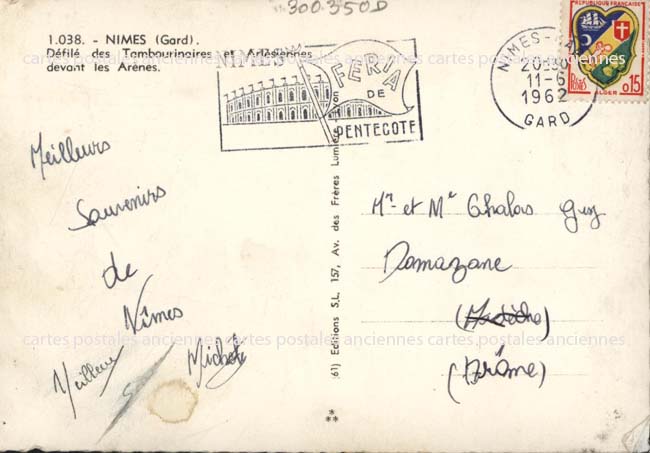 300.350D
1.038. - NIMES (Gard).
Défilé des Tambourinaires et Arlésiennes
devant les Arènes.
NIMES
FERIA
DE
PENTECOTE
NIMES-GARE
20H30
11-6
1962
GARD
REPUBLIQUE FRANCAISE
POSTES
ALGER
0,15
cartes postales anciennes cartes postales anciennes cartes postales anciennes
Meilleurs
Souvenirs
de
Nîmes
Meilleurs
Michel
(61) Editions S.L. 157, Av. des Frères Lumière
Mr et Me Chalas Guy
Domazane
(Ardèche)
(Drôme)
cartes postales anciennes cartes postales anciennes cartes postales anciennes